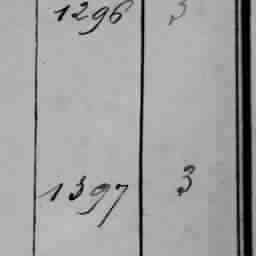 1296 3
1397 3